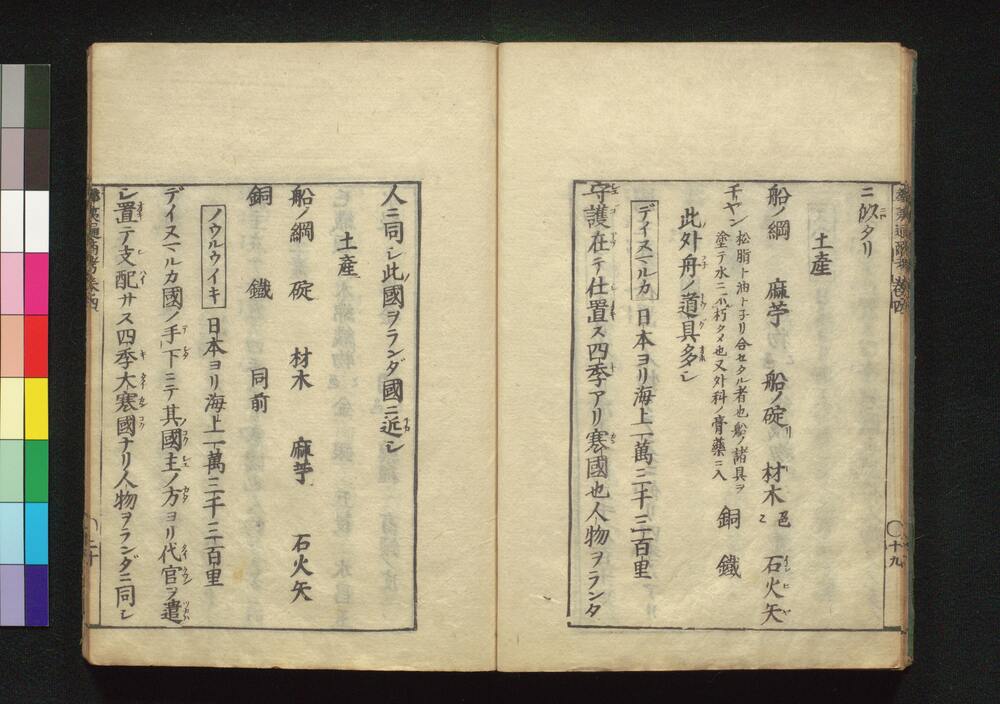 ニ似タリ
土産
船ノ綱　麻苧　船ノ碇　材木色〻　石火矢
チヤン　松脂ト油トヲ子リ合セタル者也船ノ諸具ヲ
塗テ水ニ不朽タメ也又外科ノ膏藥ニ入　銅　鐵
此外舟ノ道具多シ
デイヌマルカ　日本ヨリ海上一萬三千三百里
守護在テ仕置ス四季アリ寒國也人物ヲランダ
華夷通商考巻四　十九
人ニ同シ此國ヲランダ國ニ近シ
土産
船ノ綱　碇　材木　麻苧　石火矢
銅　鐵　同前
ノウルウイキ　日本ヨリ海上一萬三千三百里
デイヌマルカ國ノ手下ニテ其國主ノ方ヨリ代官ヲ遣
シ置テ支配サス四季大寒國ナリ人物ヲランダニ同シ
華夷通商考巻四　二十